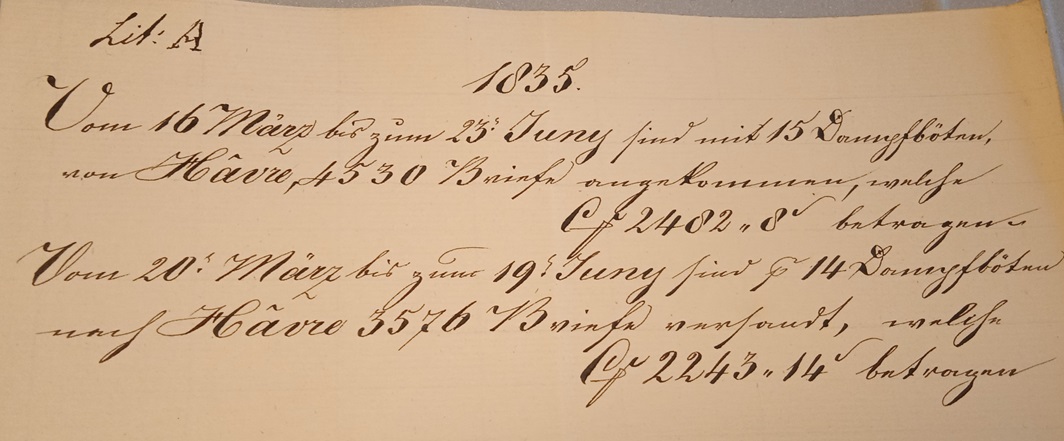 Lit: A
1835.
Vom 16 März bis zum 23t Juny sind mit 15 Dampfböten,
von Hâvre, 4530 Briefe angekommen, welche
2482 " 8 betragen
Vom 20t März bis zum 19t Juny sind p 14 Dampfböten
nach Hâvre 3576 Briefe versandt, welche
2243 " 14 betragen